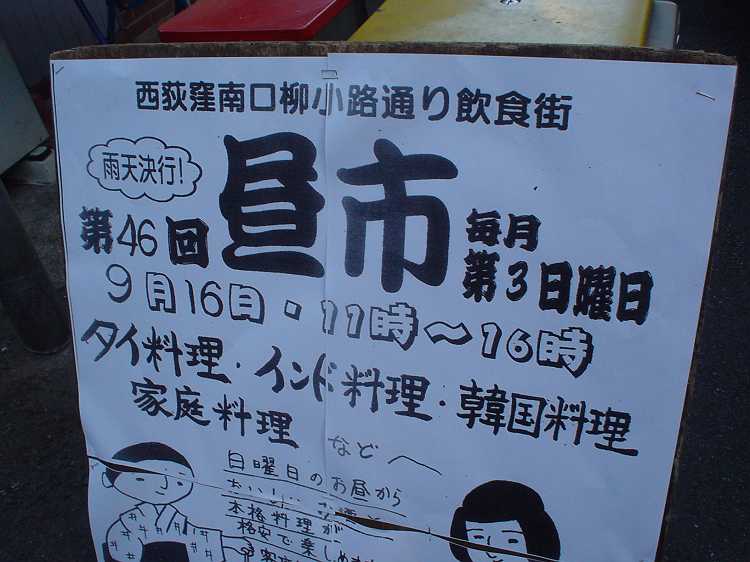 西荻窪南口柳小路通り飲食街
雨天決行!
昼市
第46回
毎月
第3日曜日
9月16日・11時〜16時
タイ料理・インド料理・韓国料理
家庭料理
など
日曜日のお昼から
おいしい
本格料理が
格安で楽しめ